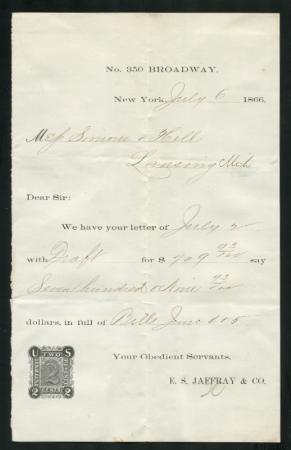 No. 350 BROADWAY.
New York, July 6 1866.
Mess Simons & Hill
Lansing Mich
Dear Sir:
We have your letter of July 2
with Draft for $ 709 93/100 say
Seven hundred & Nine 93/100
dollars, in full of Bills June
Your Obedient Servants,
E. S. JAFFRAY & CO.
U S
TWO
2
CENTS
2 2